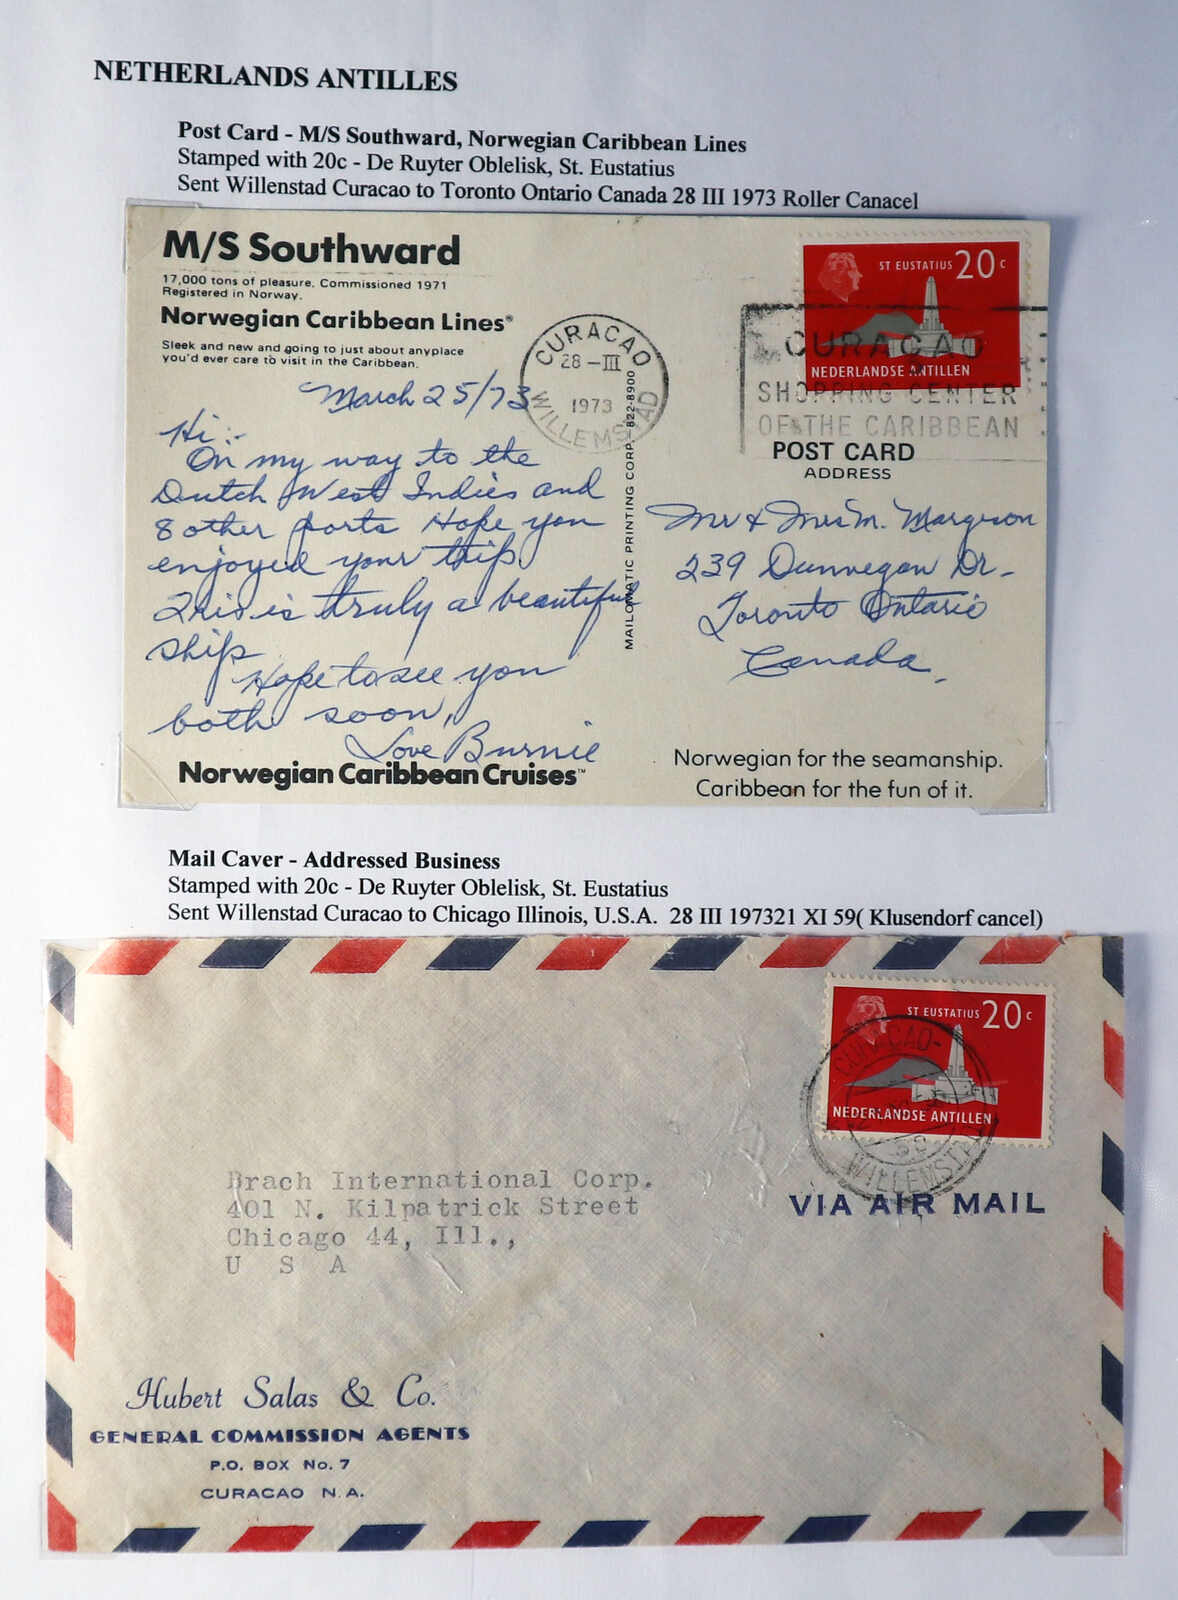 NETHERLANDS ANTILLES
Post Card - M/S Southward, Norwegian Caribbean Lines
Stamped with 20c - De Ruyter Oblelisk, St. Eustatius
Sent Willenstad Curacao to Toronto Ontario Canada 28 III 1973 Roller Canacel
M/S Southward
17,000 tons of pleasure. Commissioned 1971
Registered in Norway.
Norwegian Caribbean Lines®
Sleek and new and going to just about anyplace
you'd ever care to visit in the Caribbean.
March 25/73
Hi:-
On my way to the
Dutch West Indies and
8 other ports Hope you
enjoyed your trip.
This is truly a beautiful
ship
Hope to see you
both soon,
Love Burnie
Norwegian Caribbean Cruises™
CURACAO
28-III
1973
WILLEMSTAD
MAILOMATIC PRINTING CORP.-822-8900
ST EUSTATIUS 20 c
NEDERLANDSE ANTILLEN
CURACAO
SHOPPING CENTER
OF THE CARIBBEAN
POST CARD
ADDRESS
Mr & Mrs M. Margeson
239 Dunnegan Dr-
Toronto Ontario
Canada,
Norwegian for the seamanship.
Caribbean for the fun of it.
Mail Caver - Addressed Business
Stamped with 20c - De Ruyter Oblelisk, St. Eustatius
Sent Willenstad Curacao to Chicago Illinois, U.S.A. 28 III 197321 XI 59( Klusendorf cancel)
ST EUSTATIUS 20 c
NEDERLANDSE ANTILLEN
CURACAO-
59
WILLEMSTAD
VIA AIR MAIL
Brach International Corp.
401 N. Kilpatrick Street
Chicago 44, Ill.,
U S A
Hubert Salas & Co.
GENERAL COMMISSION AGENTS
P.O. BOX No. 7
CURACAO N.A.